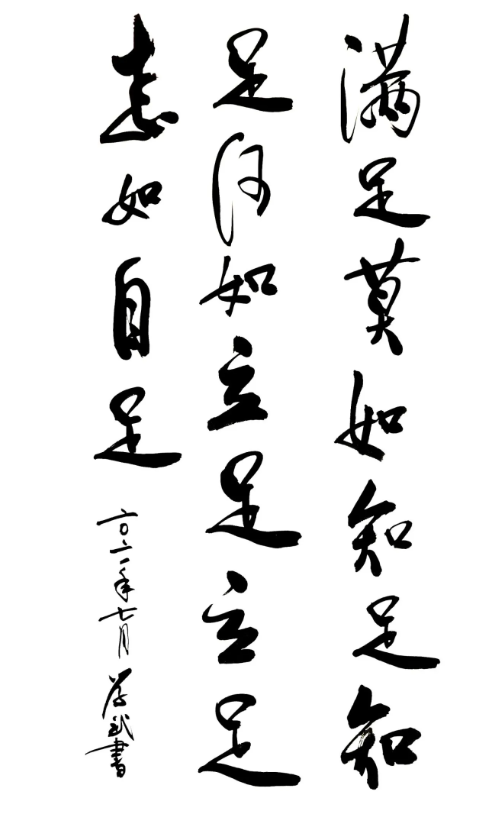 满足莫如知足知
足何如立足立足
怎如自足
二〇二一年七月 学武書